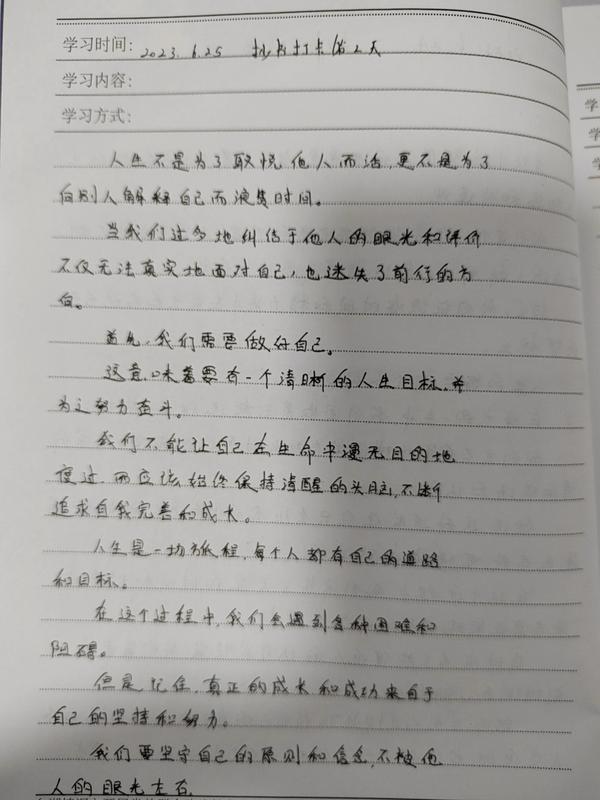 学习时间: 2023.6.25 抄书打卡第2天
学习内容:
学习方式:
人生不是为了取悦他人而活,更不是为了
向别人解释自己而浪费时间。
当我们过多地纠结于他人的眼光和评价
不仅无法真实地面对自己,也迷失了前行的方
向。
首先,我们需要做好自己。
这意味着要有一个清晰的人生目标,并
为之努力奋斗。
我们不能让自己在生命中漫无目的地
度过,而应该始终保持清醒的头脑,不断
追求自我完善和成长。
人生是一场旅程,每个人都有自己的道路
和目标。
在这个过程中,我们会遇到各种困难和
阻碍。
但是记住,真正的成长和成功来自于
自己的坚持和努力。
我们要坚守自己的原则和信念,不被他
人的眼光左右,